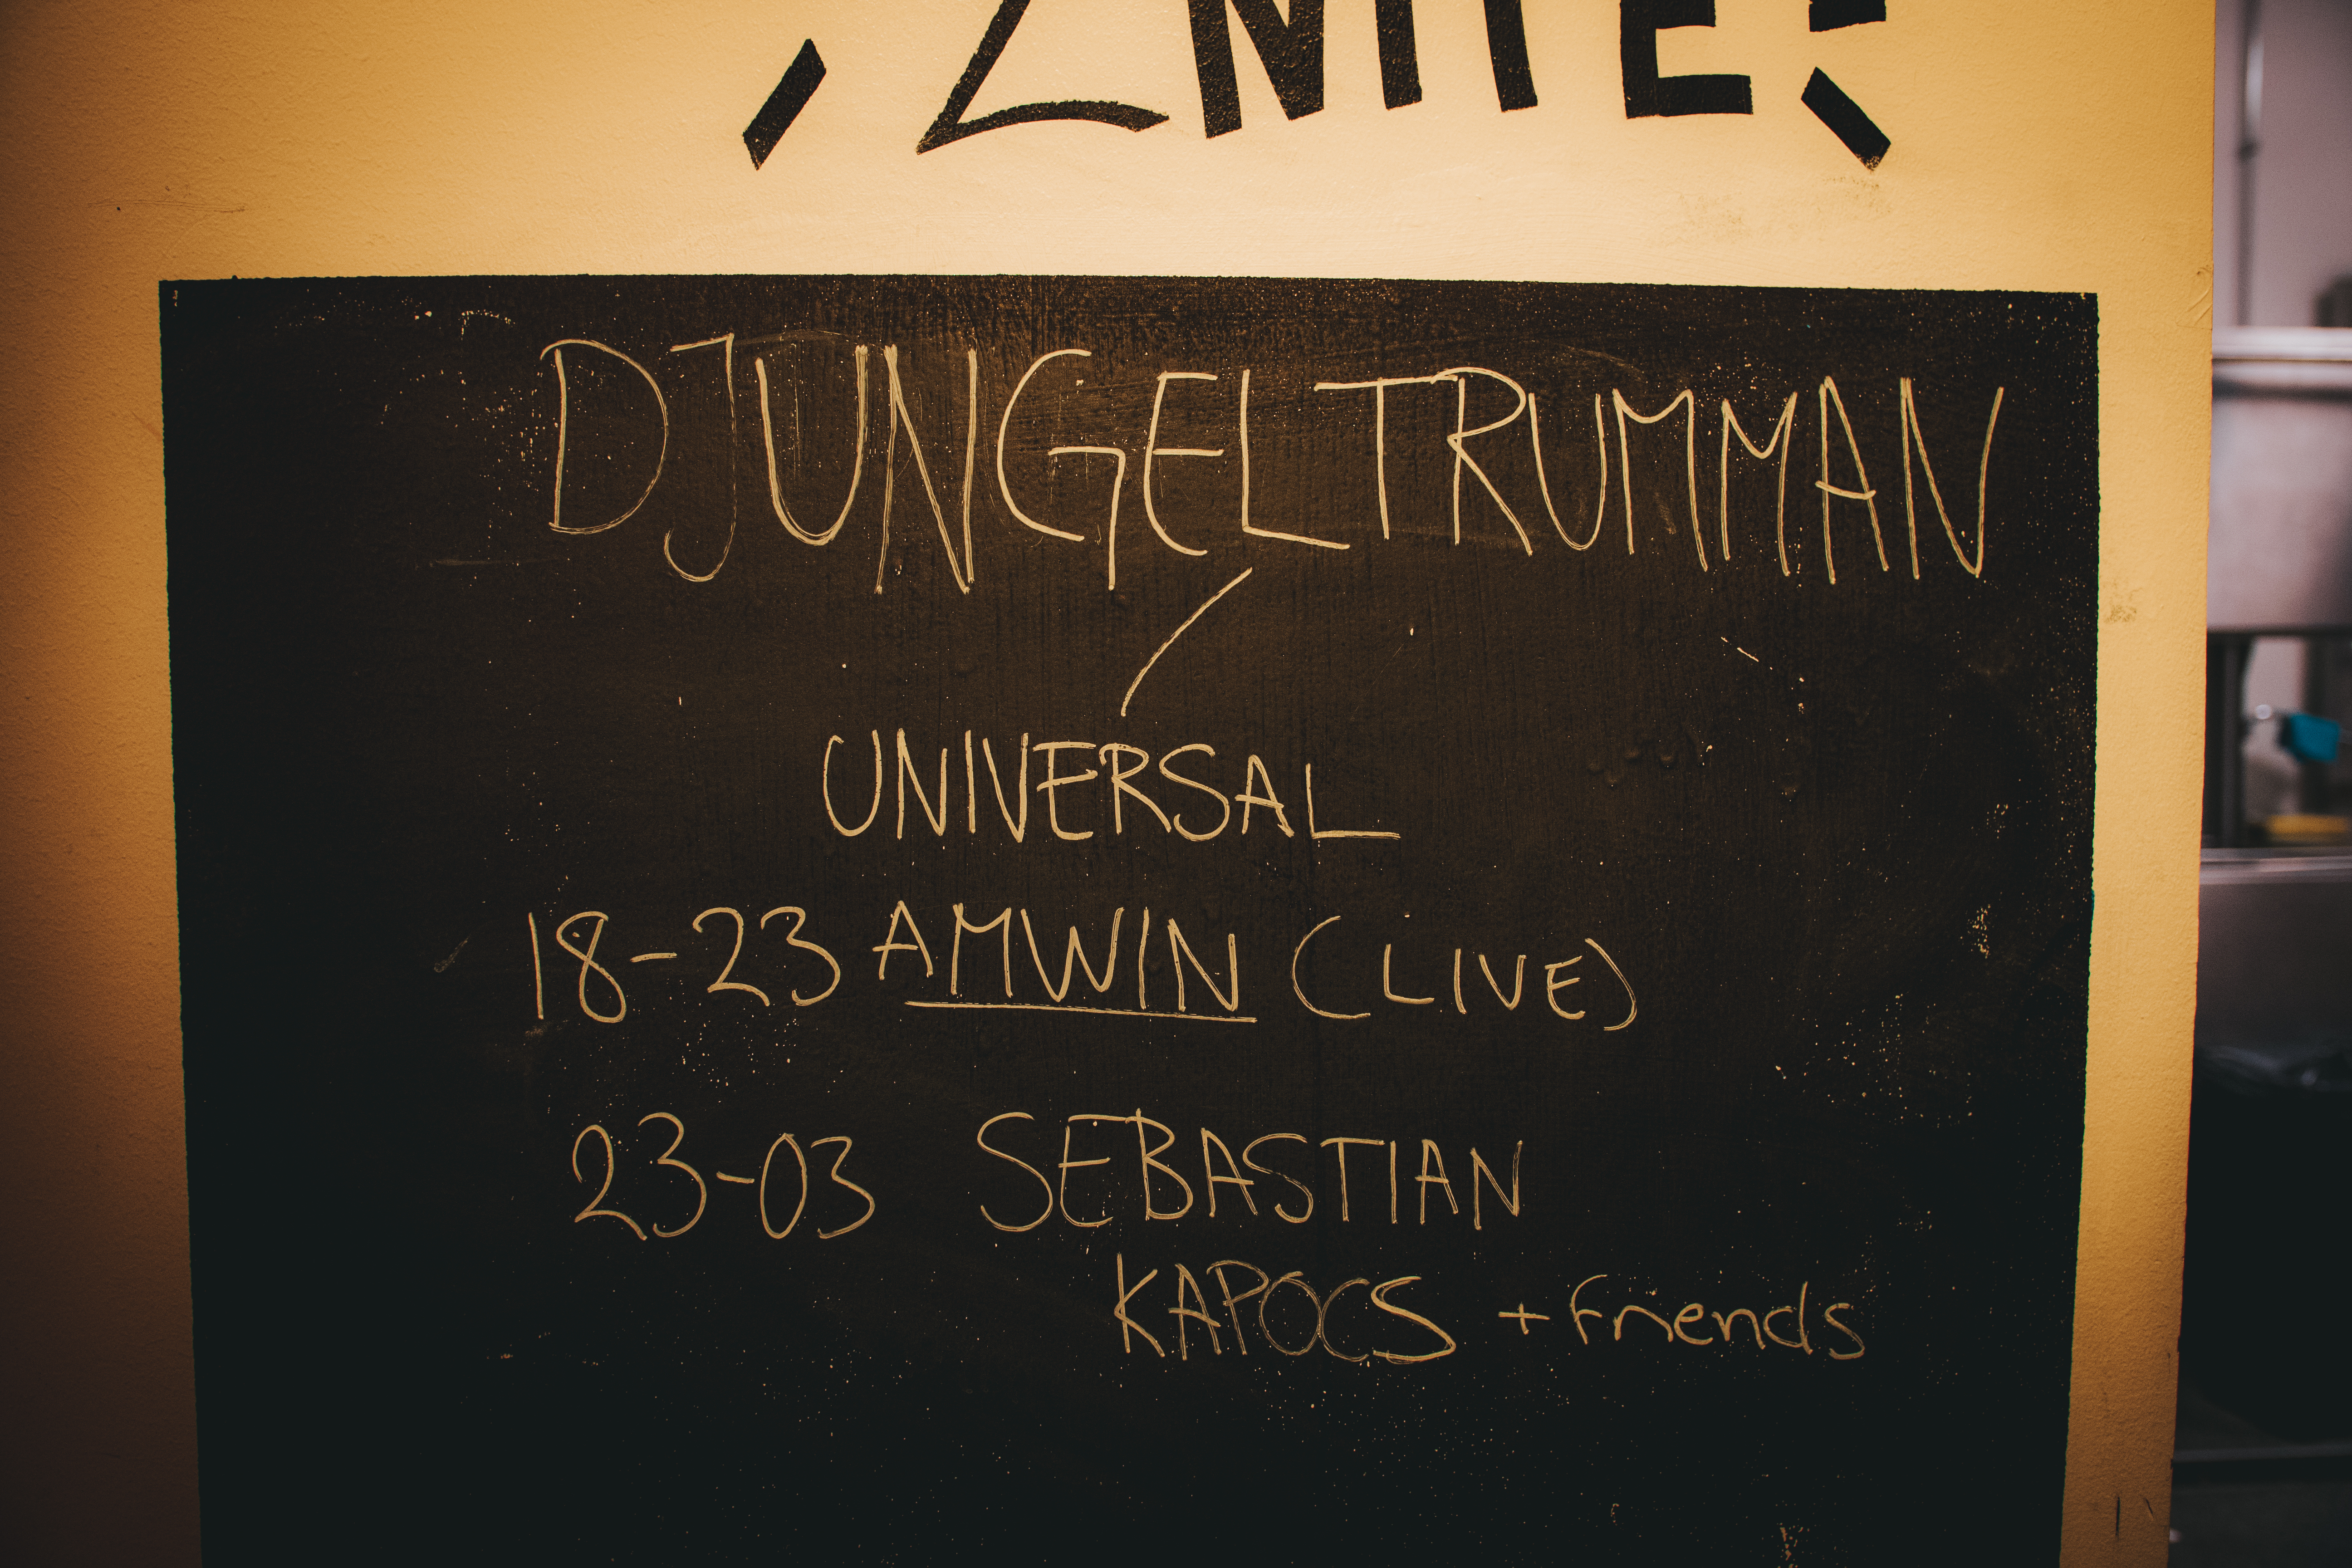 2NITE!
DJUNGELTRUMMAN
/
UNIVERSAL
18-23 AMWIN (LIVE)
23-03 SEBASTIAN
KAPOCS + friends